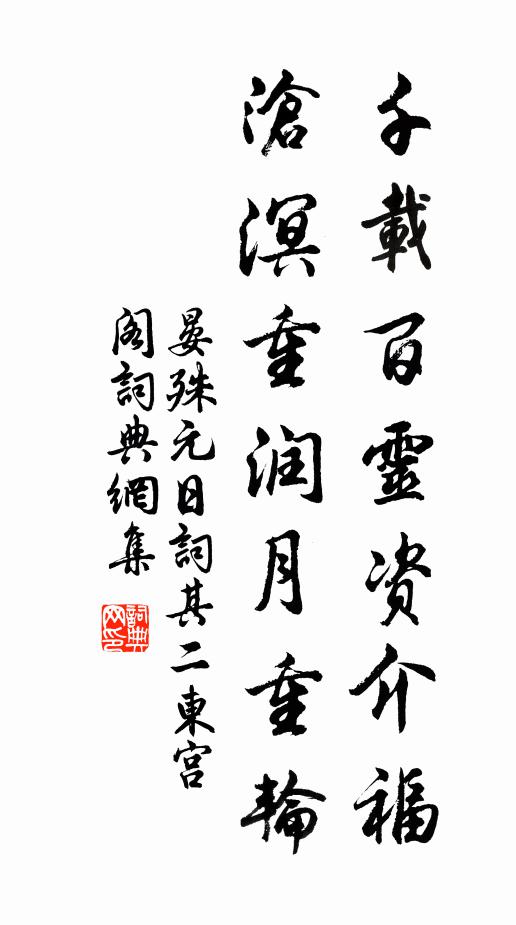 千載百靈資介福
滄溟重润月重輪
晏殊元日詞其二東宫
阁詞典網集
詞典网印